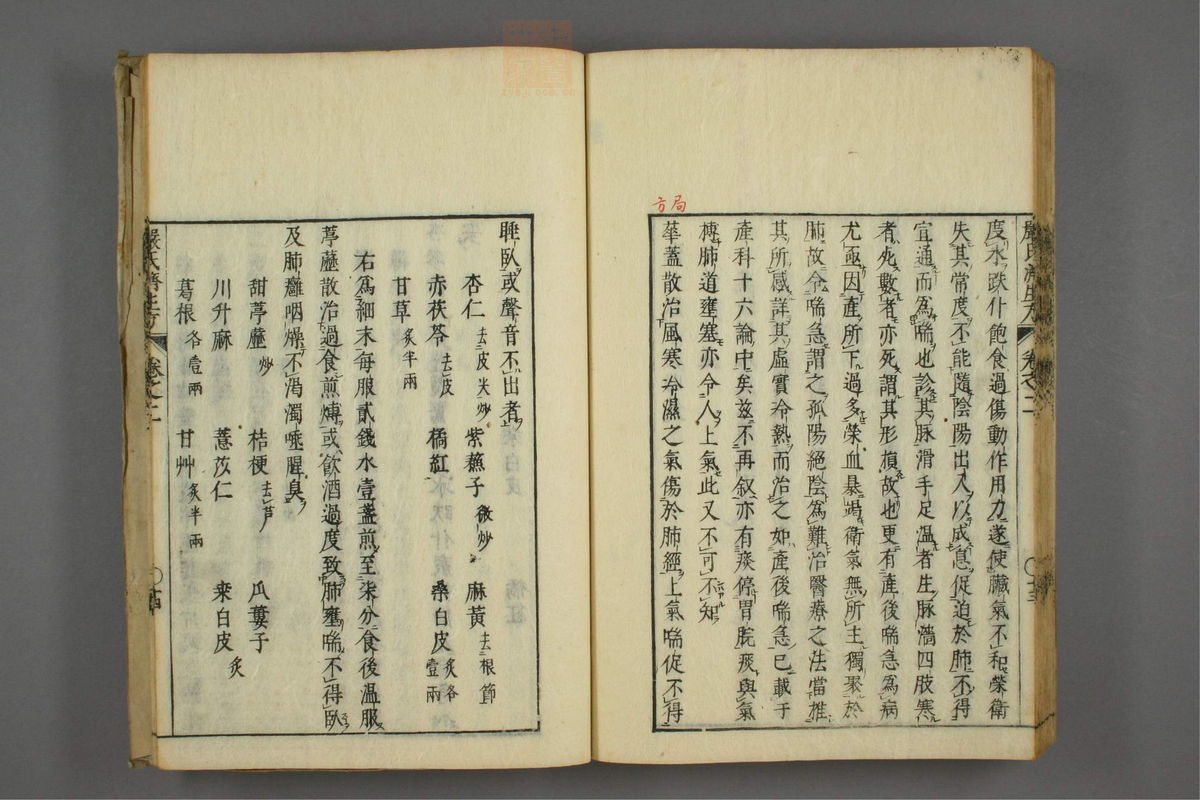 局方
嚴氏濟生方 卷之二 ○十三
度水跌仆飽食過傷動作用力遂使臟氣不和榮衛
失其常度不能隨陰陽出入以成息促迫於肺不得
宣通而爲喘也診其脉滑手足温者生脉濇四肢寒
者死數者亦死謂其形損故也更有產後喘急爲病
尤亟因產所下過多榮血暴竭衛氣無所主獨聚於
肺故令喘急謂之孤陽絕陰爲難治醫療之法當推
其所感詳其虛實冷熱而治之如產後喘急已載于
產科十六論中矣兹不再叙亦有痰停胃脘痰與氣
搏肺道壅塞亦令人上氣此又不可不知
華蓋散治風寒冷濕之氣傷於肺經上氣喘促不得
睡臥或聲音不出者
杏仁去皮尖炒 紫蘇子微炒 麻黃去根節
赤茯苓去皮 橘紅 桑白皮炙各壹兩
甘草炙半兩
右爲細末每服貳錢水壹盞煎至柒分食後温服
葶藶散治過食煎煿或飲酒過度致肺壅喘不得臥
及肺癰咽燥不渴濁唾腥臭
甜葶藶炒 桔梗去芦 瓜蔞子
川升麻 薏苡仁 桑白皮炙
葛根各壹兩 甘艸炙半兩
嚴氏濟生方 卷之二 ○十四